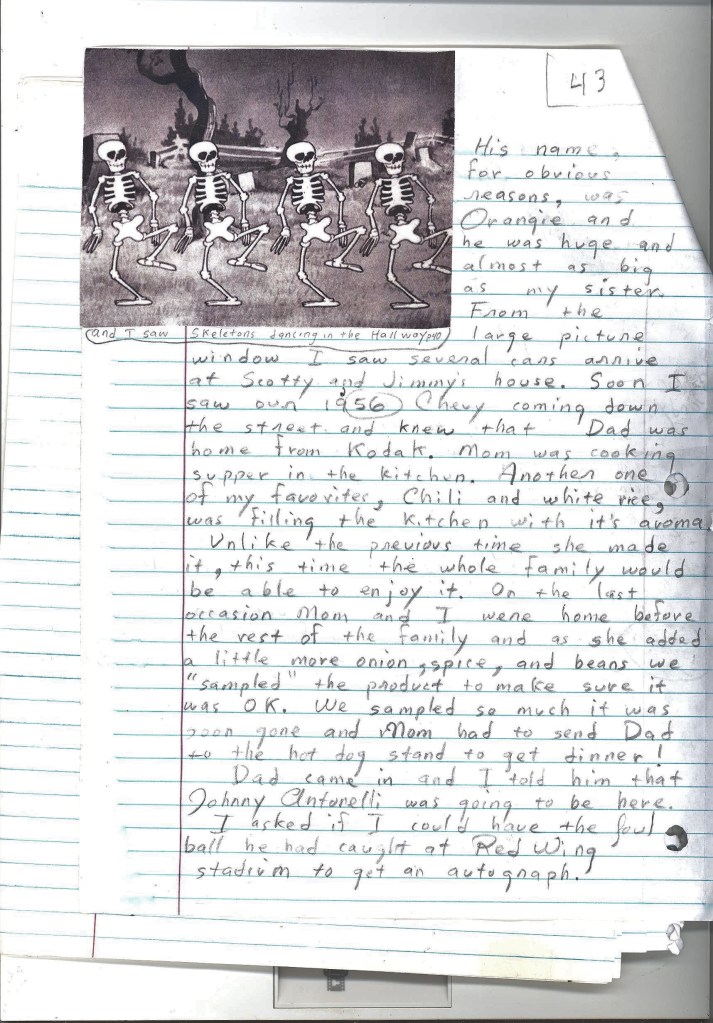 43
His name,
for obvious
reasons, was
Orangie and
he was huge and
almost as big
as my sister.
From the
large picture
and I saw Skeletons dancing in the Hallway p40
window I saw several cars arrive
at Scotty and Jimmy's house. Soon I
saw our 1956 Chevy coming down
the street and knew that Dad was
home from Kodak. Mom was cooking
supper in the kitchen. Another one
of my favorites, Chili and white rice,
was filling the kitchen with it's aroma
Unlike the previous time she made
it, this time the whole family would
be able to enjoy it. On the last
occasion Mom and I were home before
the rest of the family and as she added
a little more onion, spice, and beans we
"sampled" the product to make sure it
was OK. We sampled so much it was
soon gone and Mom had to send Dad
to the hot dog stand to get dinner!
Dad came in and I told him that
Johnny Antonelli was going to be here.
I asked if I could have the foul
ball he had caught at Red Wing
stadium to get an autograph.